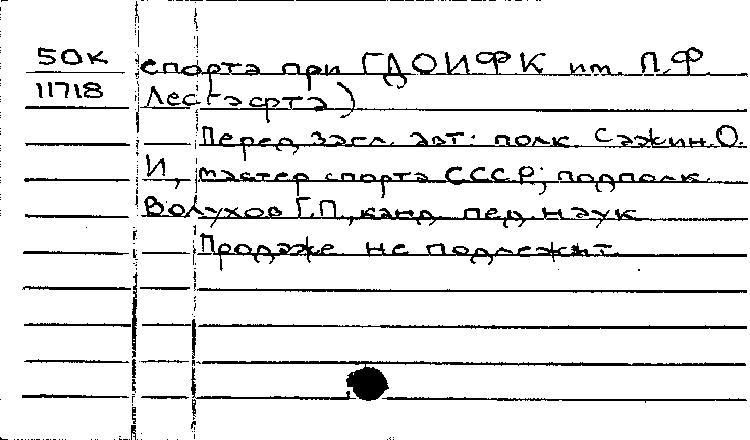 50К спорта при ГДОИФК им. П.Ф.
11718 Лесгафта)
Перед загл. авт: полк. Сажин О.
И., мастер спорта СССР; подполк.
Волухов Г.П., канд. пед. наук
Продаже не подлежит.